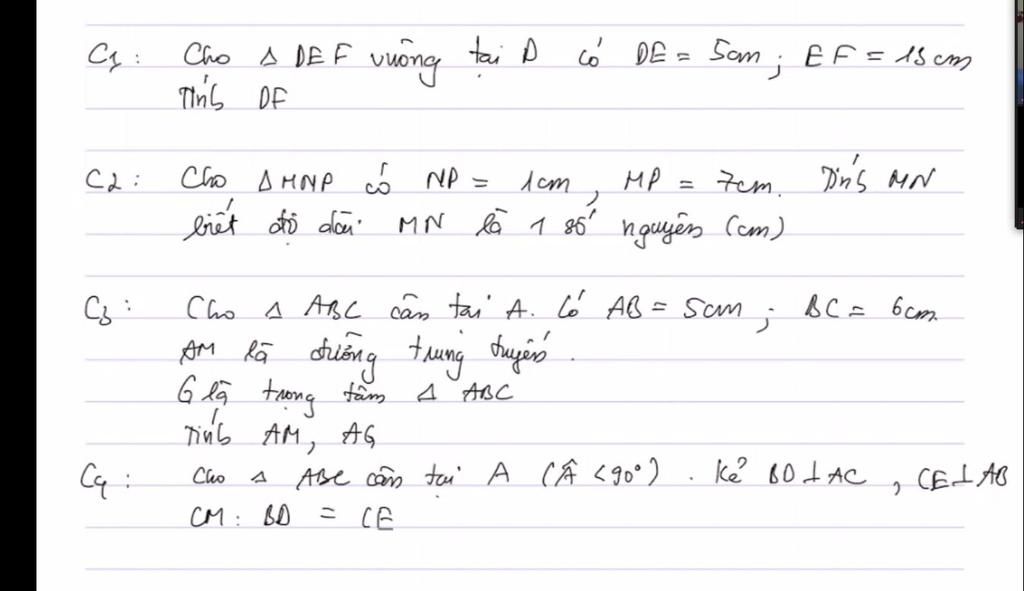 C1: Cho Δ DEF vuông tại D có DE = 5cm; EF = 13cm
Tính DF
C2: Cho ΔMNP có NP = 1cm, MP = 7cm. Tính MN
biết độ dài MN là 1 số nguyên (cm)
C3: Cho Δ ABC cân tại A. Có AB = 5cm; BC = 6cm.
AM là đường trung tuyến.
G là trọng tâm Δ ABC
Tính AM, AG
C4: Cho Δ ABC cân tại A (Â <90°). Kẻ BD⊥AC, CE⊥AB
CM: BD = CE